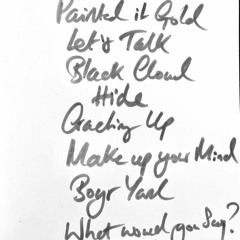 Painted it Gold
Let's Talk
Black Cloud
Hide
Cracking Up
Make up your Mind
Boyr Yard
What would you Say?